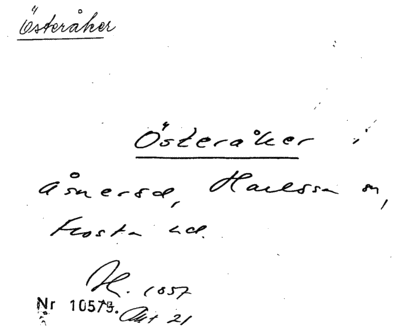 Österåker
Österåker
Åsnersd, Harlssa n,
Frosta hd.
H. 1057
Nr 10579. Akt 21